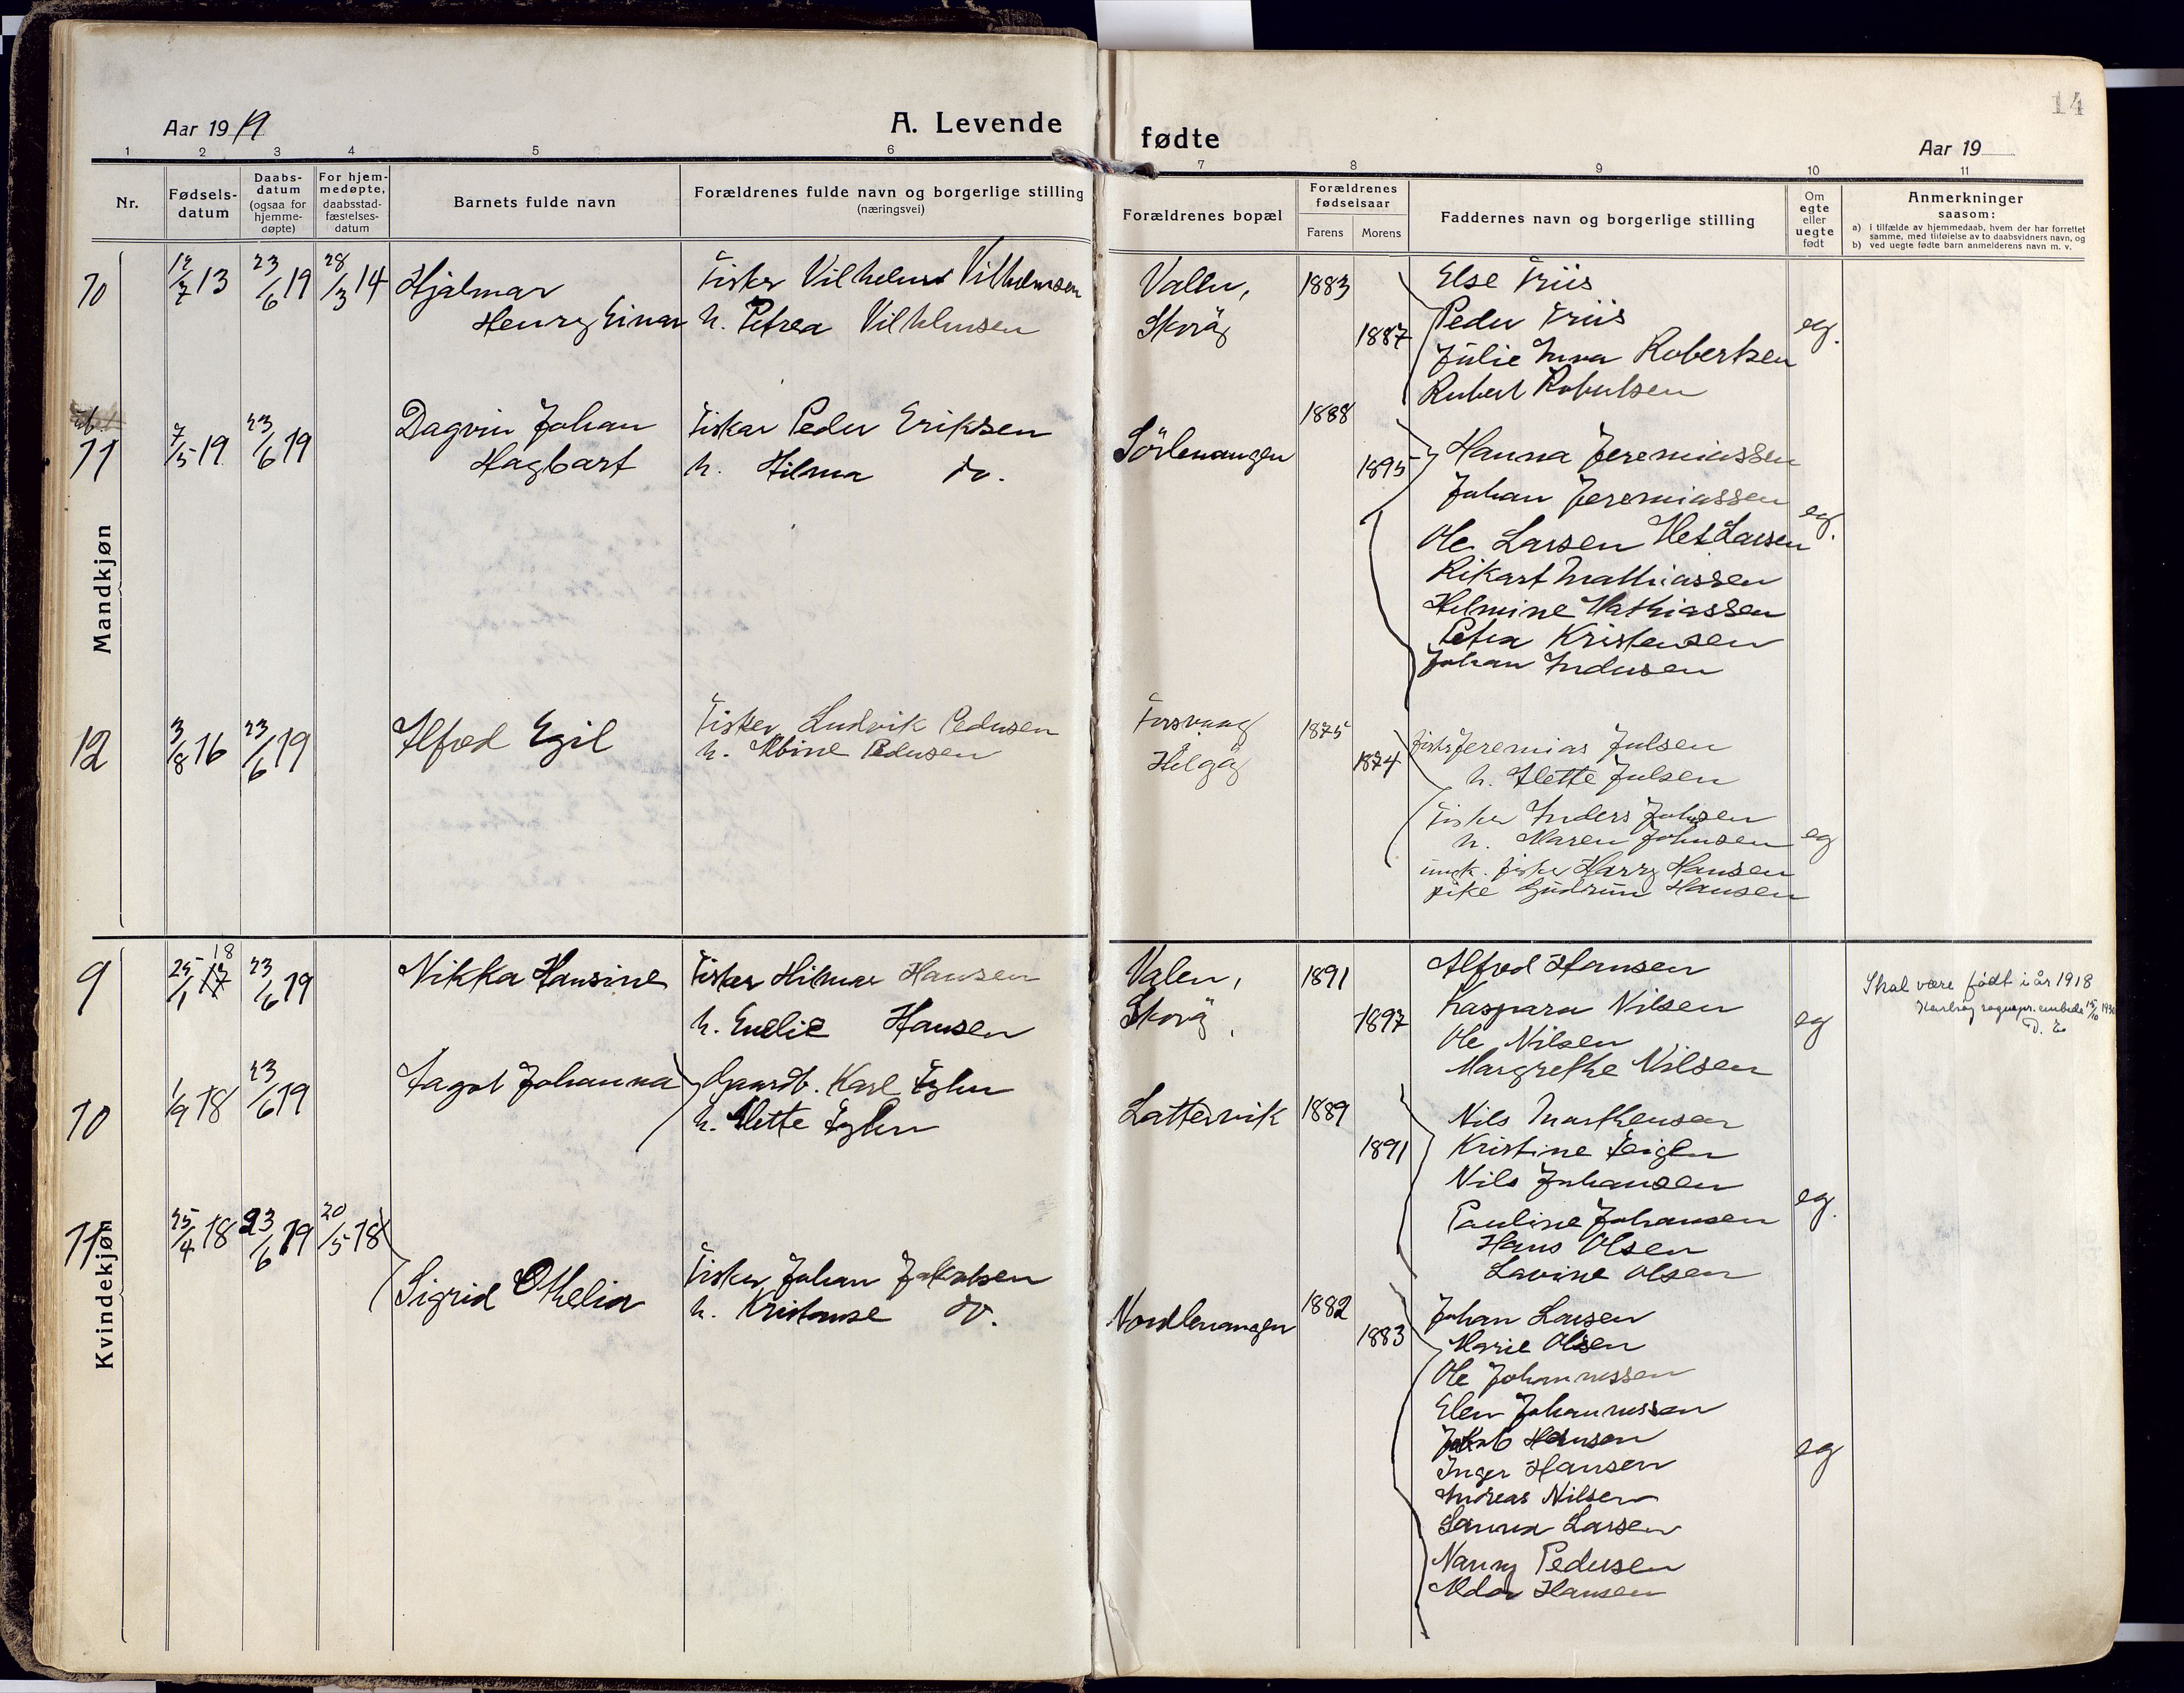 Aar 1919
A. Levende
1 2 3 4 5 6
Nr.
Fødsels-
datum
Daabs-
datum
(ogsaa for
hjemme-
døpte)
For hjem-
medøpte,
daabsstad-
fæstelses-
datum
Barnets fulde navn
Forældrenes fulde navn og borgerlige stilling
(næringsvei)
Mandkjøn
10 12/7 13 23/6 19 28/3 14 Hjalmar Fisker Vilhelm Vilhelmsen
Henry Einar h. Petrea Vilhelmsen
11 7/5 19 23/6 19 Dagvin Johan Fisker Peder Eriksen
Hagbart h. Hilma do.
12 3/8 16 23/6 19 Alfred Egil Fisker Ludvik Pedersen
h. Albine Pedersen
Kvindekjøn
18
9 25/1 17 23/6 19 Nikka Hansine Fisker Hilmar Hansen
h. Emelie Hansen
10 1/9 18 23/6 19 Aagot Johanna Gaardb. Karl
h. Alette
11 25/4 18 23/6 19 20/5 18
Sigrid Othelia Fisker Johan Jakobsen
h. Kristanse do.
14
fødte
Aar 19
7 8 9 10 11
Forældrenes bopæl
Forældrenes
fødselsaar
Farens Morens
Faddernes navn og borgerlige stilling
Om
egte
eller
uegte
født
Anmerkninger
saasom:
a) i tilfælde av hjemmedaab, hvem der har forrettet
samme, med tilføielse av to daabsvidners navn, og
b) ved uegte fødte barn anmelderens navn m. v.
Vallen, 1883 Else Friis
Skorøy 1887 Peder Friis eg.
Julie Robertsen
Robert Robertsen
1888
Sörlenangen 1895 Hanna Jeremiassen
Johan Jeremiassen eg.
Ole Larsen Larsen
Rikart Mathiassen
Helmine Mathiassen
Petra Kristensen
Johan Andersen
1875 Fisker Jeremias Julsen
Helgøy 1874 h. Alette Julsen
Fisker Anders Johnsen
h. Maren Johnsen eg
ungk. fisker Harry Hansen
pike Gudrun Hansen
Valen, 1891 Alfred Hansen
Skorø, 1897 Kaspara Nilsen eg
Ole Nilsen
Margrethe Nilsen
Skal være født i år 1918
Karlsøy sognepr. embede 15/10
Lattervik 1889 Nils Marthensen
1891 Kristine
Nils Johansen
Pauline Johansen eg.
Hans Olsen
Lavine Olsen
Nordlenangen 1882 Johan Larsen
1883 Marie Olsen
Ole Johannessen
Elen Johannessen
Jakob Hansen eg
Inger Hansen
Andreas Nilsen
Sanna Larsen
Nanny Pedersen
Aldor Hansen